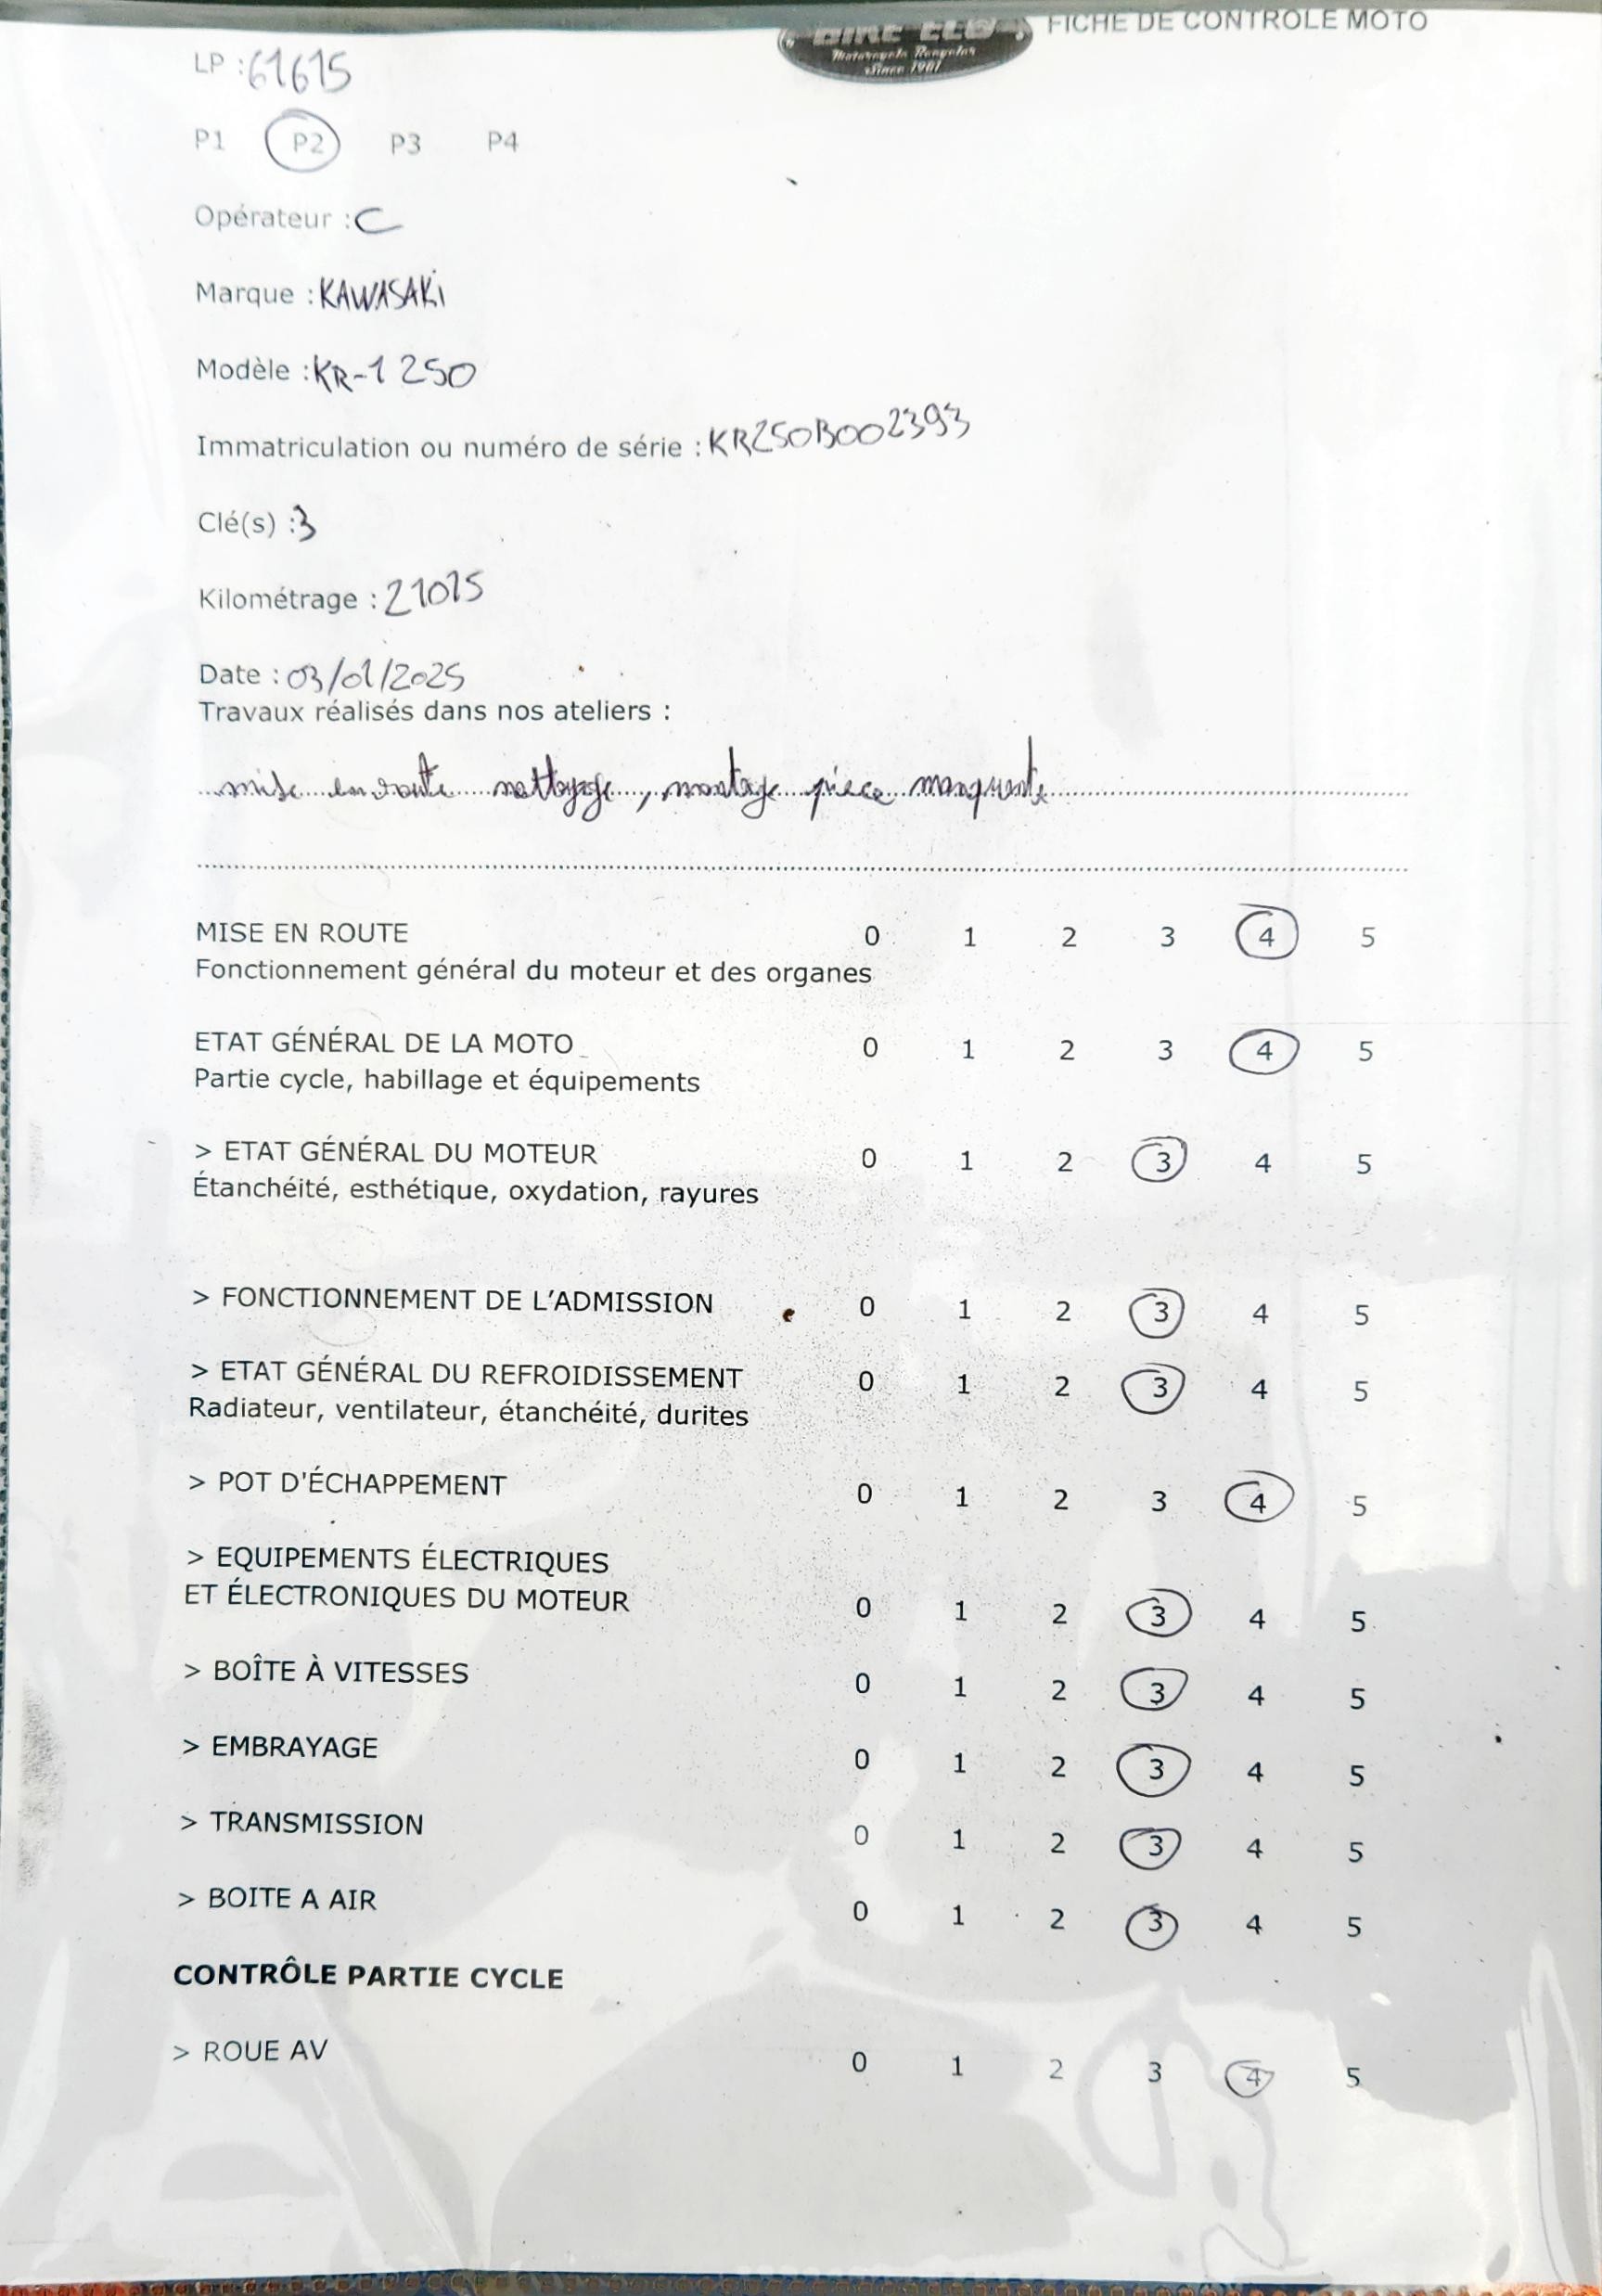 BIKE ECO FICHE DE CONTRÔLE MOTO
Motorcycle Recycler
Since 1981
LP : 61615
P1 P2 P3 P4
Opérateur : C
Marque : KAWASAKi
Modèle : KR-1 250
Immatriculation ou numéro de série : KR250B002393
Clé(s) : 3
Kilométrage : 21015
Date : 03/01/2025
Travaux réalisés dans nos ateliers :
mise en route nettoyage, montage piece manquante
MISE EN ROUTE 0 1 2 3 4 5
Fonctionnement général du moteur et des organes
ETAT GÉNÉRAL DE LA MOTO 0 1 2 3 4 5
Partie cycle, habillage et équipements
> ETAT GÉNÉRAL DU MOTEUR 0 1 2 3 4 5
Étanchéité, esthétique, oxydation, rayures
> FONCTIONNEMENT DE L’ADMISSION 0 1 2 3 4 5
> ETAT GÉNÉRAL DU REFROIDISSEMENT 0 1 2 3 4 5
Radiateur, ventilateur, étanchéité, durites
> POT D'ÉCHAPPEMENT 0 1 2 3 4 5
> EQUIPEMENTS ÉLECTRIQUES
ET ÉLECTRONIQUES DU MOTEUR 0 1 2 3 4 5
> BOÎTE À VITESSES 0 1 2 3 4 5
> EMBRAYAGE 0 1 2 3 4 5
> TRANSMISSION 0 1 2 3 4 5
> BOITE A AIR 0 1 2 3 4 5
CONTRÔLE PARTIE CYCLE
> ROUE AV 0 1 2 3 4 5